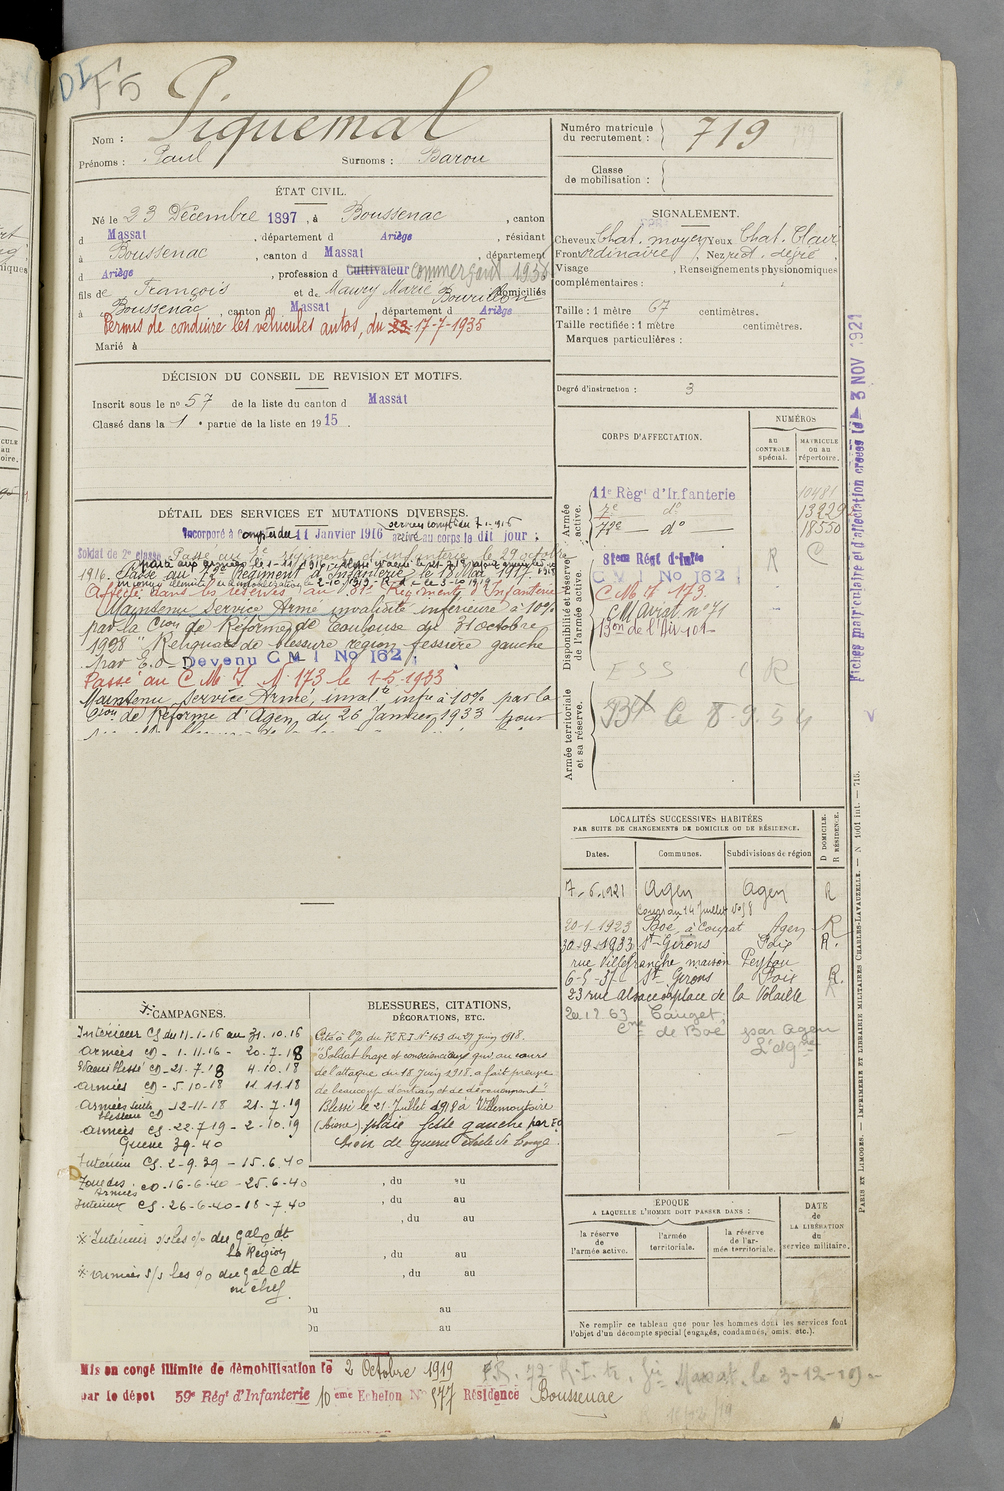 DI F5
Nom : Piquemal
Prénoms : Paul Surnoms : Barou
Numéro matricule du recrutement : 719
Classe de mobilisation :
ÉTAT CIVIL.
Né le 23 Décembre 1897, à Boussenac, canton
d Massat, département d Ariège, résidant
à Boussenac, canton d Massat, département
d Ariège, profession d Cultivateur Commerçant 1938
fils de François et de Maury Marie Bourillon domiciliés
à Boussenac, canton d Massat département d Ariège
Permis de conduire les véhicules autos, du 23- 17-7-1935
Marié à
SIGNALEMENT.
Cheveux Chat. moyen Yeux Chat. Clair
Front ordinaire, Nez rect. dégré,
Visage , Renseignements physionomiques
complémentaires :
Taille : 1 mètre 67 centimètres.
Taille rectifiée : 1 mètre centimètres.
Marques particulières :
Degré d'instruction : 3
DÉCISION DU CONSEIL DE REVISION ET MOTIFS.
Inscrit sous le no 57 de la liste du canton d Massat
Classé dans la 1e partie de la liste en 1915.
CORPS D'AFFECTATION.
NUMÉROS
AU CONTRÔLE spécial.
MATRICULE OU AU répertoire.
Armée active.
11e Régt d'Infanterie 10481
7e do 13229
72e do 18550
Disponibilité et réserve de l'armée active.
81eme Régt d'Infie R C
C M I No 162
C M I 173.
CM Aviat. no 71
Bon de l'Air 101
E S S (R
Armée territoriale et sa réserve.
BX le 8.9.54
DÉTAIL DES SERVICES ET MUTATIONS DIVERSES.
Incorporé à compter du 11 Janvier 1916 active au corps le dit jour ;
Soldat de 2e classe Passé au 7e Régiment d'infanterie le 29 octobre
1916. Passé au 72e Régiment d'Infanterie le 18 Mai 1917.
Affecté dans les réserves au 81e Régiments d'Infanterie
Maintenu Service Armé invalidité inférieure à 10%
par la Cion de Réforme de Toulouse du 31 octobre
1928 "Reliquats de blessure région fessière gauche
par E.O. Devenu C M I No 162
Passé au C M I No 173 le 1-5-1933
Maintenu Service Armé, inval.té infre à 10% par la
Cion de Réforme d'Agen, du 26 Janvier 1933 pour
LOCALITÉS SUCCESSIVES HABITÉES
PAR SUITE DE CHANGEMENTS DE DOMICILE OU DE RÉSIDENCE.
Dates. Communes. Subdivisions de région
D DOMICILE. R RÉSIDENCE.
7-6-1921 Agen Agen R
Cours du 14 Juillet No 58
20-1-1923 Boé, à Coupat Agen R
30-9-1933 St-Girons Foix R.
rue Villefranche maison Peyrou
6-5-37 St Girons Foix R.
23 rue Alsace place de la Volaille
20.12.63 Cauget,
Cne de Boé par Agen
L. et Gne
CAMPAGNES.
Intérieur CS du 11-1-16 au 31.10.16
Armées CD - 1-11-16 - 20.7.18
Evacué blessé CD - 21.7.18 4.10.18
Armées CD - 5-10-18 11.11.18
Armées suite blessure CD - 12-11-18 21.7.19
Armées CS - 22.7.19 - 2.10.19
Guerre 39-40
Intérieur CS. 2-9.39 - 15.6.40
Zone des Armées CD - 16-6-40 - 25.6-40
Intérieur CS. 26-6-40 - 18-7.40
* Intérieur s/s les o/ du Gal Cdt la Région
* Armées s/s les o/ du Gal Cdt en chef.
BLESSURES, CITATIONS, DÉCORATIONS, ETC.
Cité à l'o/ du R I No 163 du 27 juin 1918.
"Soldat brave et consciencieux qui, au cours
de l'attaque du 18 juin 1918, a fait preuve
de beaucoup d'entrain et de dévouement"
Blessé le 21 Juillet 1918 à Villemontoire
(Aisne) plaie fesse gauche par E.O
Croix de guerre étoile de bronze.
, du au
, du au
, du au
, du au
, du au
Du au
Du au
ÉPOQUE
A LAQUELLE L'HOMME DOIT PASSER DANS :
la réserve de l'armée active.
l'armée territoriale.
la réserve de l'armée territoriale.
DATE de LA LIBÉRATION du service militaire.
Ne remplir ce tableau que pour les hommes dont les services font
l'objet d'un décompte spécial (engagés, condamnés, omis, etc.).
Mis en congé illimité de démobilisation le 2 Octobre 1919
par le dépôt 59e Rég d'Infanterie 10ème Echelon No 577 Résidence Boussenac
Fiches matriculaire et d'affectation créées le 3 NOV 1921
PARIS ET LIMOGES. — IMPRIMERIE ET LIBRAIRIE MILITAIRES CHARLES-LAVAUZELLE. — N 1001 int. — 715.